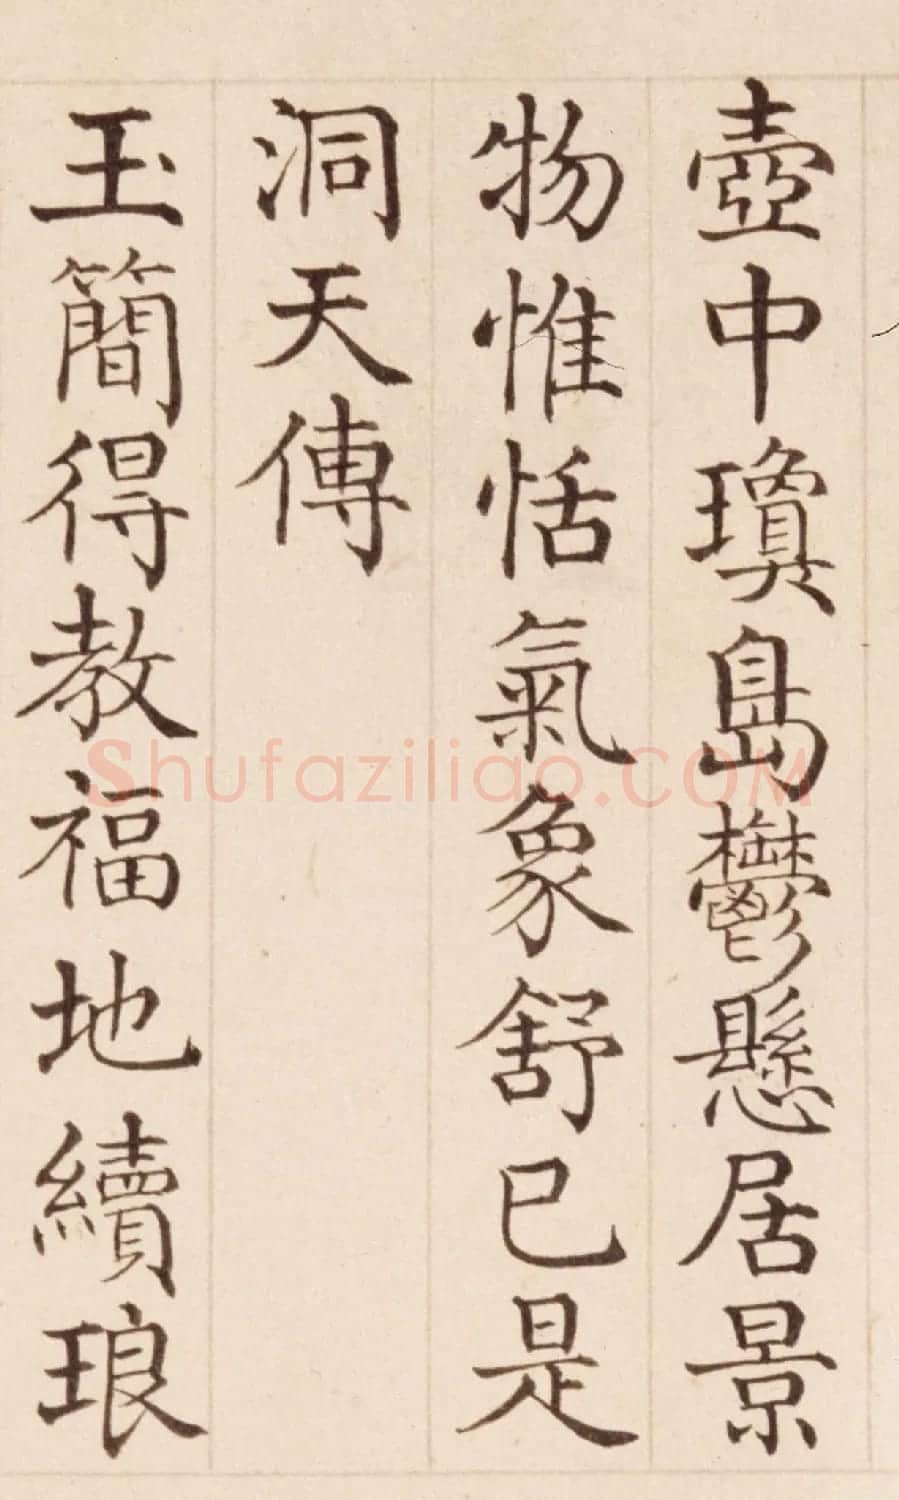 壺中瓊島鬱懸居景
物惟恬氣象舒已是
洞天傳
玉簡得教福地續琅
Shufaziliao.COM